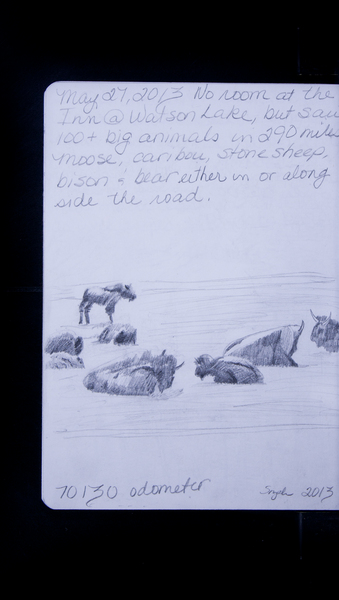 May 27, 2013 No room at the
Inn @ Watson Lake, but saw
100+ big animals in 290 miles
moose, caribou, stone sheep,
bison & bear either in or along
side the road.
70130 odometer
2013